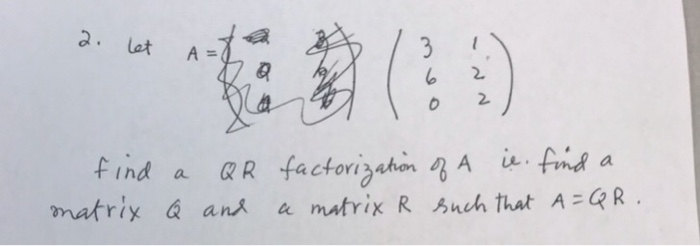 2. Let A = ( 3 1
6 2
0 2 )
find a QR factorization of A ie. find a
matrix Q and a matrix R such that A = QR.